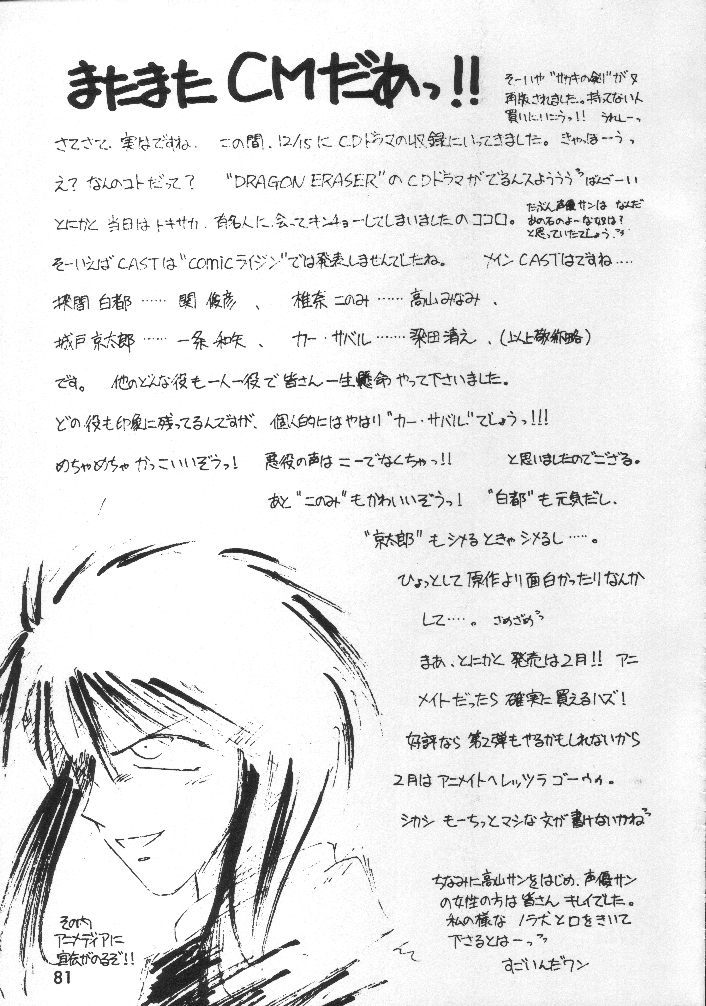 またまた CMだあっ!!
そーいや"サカキの剣"が又
再版されました。持ってない人
買いにいこうっ!! うれしーっ
さてさて、実はですね、この間、12/15にCDドラマの収録にいってきました。きゃっほーうっ
え?なんのコトだって? "DRAGON ERASER"のCDドラマがでるんスようううばんざーい
とにかく当日はトキサカ、有名人に会ってキンチョーしてしまいましたのココロ。
たぶん声優サンは なんだ
あの石のよーな奴は?
と思っていたでしょう。
そーいえばCASTは"comicライジン"では発表しませんでしたね。 メインCASTはですね‥‥
探間 白都‥‥‥関 俊彦、椎奈このみ‥‥‥高山みなみ、
城戸京太郎‥‥‥一条和矢、カー・サバル‥‥‥梁田清え、(以上敬称略)
です。 他のどんな役も一人一役で皆さん一生懸命やって下さいました。
どの役も印象に残ってるんですが、個人的にはやはり"カー・サバル"でしょうっ!!!
めちゃめちゃかっこいいぞうっ! 悪役の声はこーでなくちゃっ!! と思いましたのでござる。
あと"このみ"もかわいいぞうっ! "白都"も元気だし、
"京太郎"もシメるときゃシメるし‥‥。
ひょっとして原作より面白かったりなんか
して‥‥。さめざめ
まあ、とにかく発売は2月!! アニ
メイトだったら確実に買えるハズ!
好評なら第2弾もやるかもしれないから
2月はアニメイトへレッツラゴーゥゥ。
シカシもーちっとマシな文が書けないかね
ちなみに高山サンをはじめ、声優サン
の女性の方は皆さんキレイでした。
私の様なノラ犬と口をきいて
下さるとはーっ
すごいんだワン
その内
アニメディアに
宣伝がのるぞ!!
81